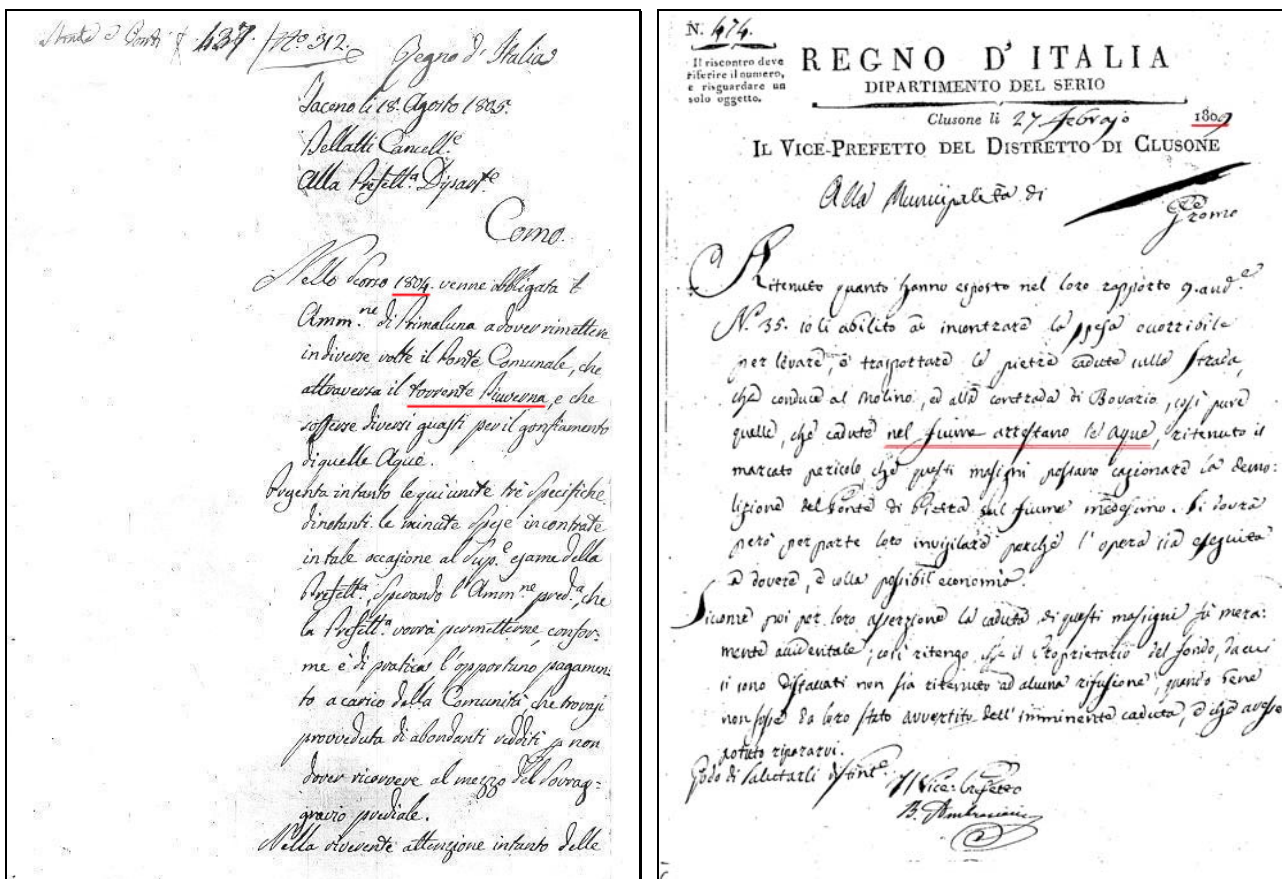 Strade e Ponti 437. / No. 312.
Regno d'Italia
Taceno li 18. Agosto 1805.
Bellatti Cancell.e
Alla Prefett.a Dipart.e
Como.
Nello scorso 1804. venne obbligata l'
Amm.ne di Primaluna a dover rimettere
in diverse volte il Ponte Comunale, che
attraversa il torrente Pioverna, e che
sofferse diversi guasti per il gonfiamento
di quelle Aque.
intanto le qui unite trè specifiche
dinotanti le minute spese incontrate
in tale occasione al Sup.e esame della
Prefett.a, sperando l'Amm.ne pred.a, che
la Prefett.a vorrà permetterne, confor-
me è di pratica l'opportuno pagamen-
to a carico della Comunità che trovasi
provveduta di abondanti redditi p non
dover ricorrere al mezzo del sovrag-
gravio prediale.
Nella riverente attenzione intanto delle
N. 474.
Il riscontro deve
riferire il numero,
e risguardare un
solo oggetto.
REGNO D'ITALIA
DIPARTIMENTO DEL SERIO
Clusone li 27 febrajo 1809
IL VICE-PREFETTO DEL DISTRETTO DI CLUSONE
Alla Municipalità di
Gromo
Ritenuto quanto hanno esposto nel loro rapporto 9. and.e
N. 35. io li abilito ad incontrare la spesa occorribile
per levare, e trasportare le pietre cadute sulla strada,
che conduce al Molino, ed alla contrada di Bovario, così pure
quelle, che cadute nel fiume arrestano le aque, ritenuto il
marcato pericolo che questi masigni possano cagionare la demo:
lizione del Ponte di Pietra sul fiume medesimo. Si dovrà
però per parte loro invigilare perché l'opera sia eseguita
a dovere, e colla possibil economia.
Siccome poi per loro asserzione la caduta di questi masigni fù mera:
mente accidentale, così ritengo che il Proprietario del fondo, da cui
si sono distaccati non sia ritenuto ad alcuna rifusione, quando bene
non fosse da loro stato avvertito dell'imminente caduta, e che avesse
potuto ripararvi.
Godo di salutarli distint.e
Il Vice-Prefetto
B. Ambrosioni